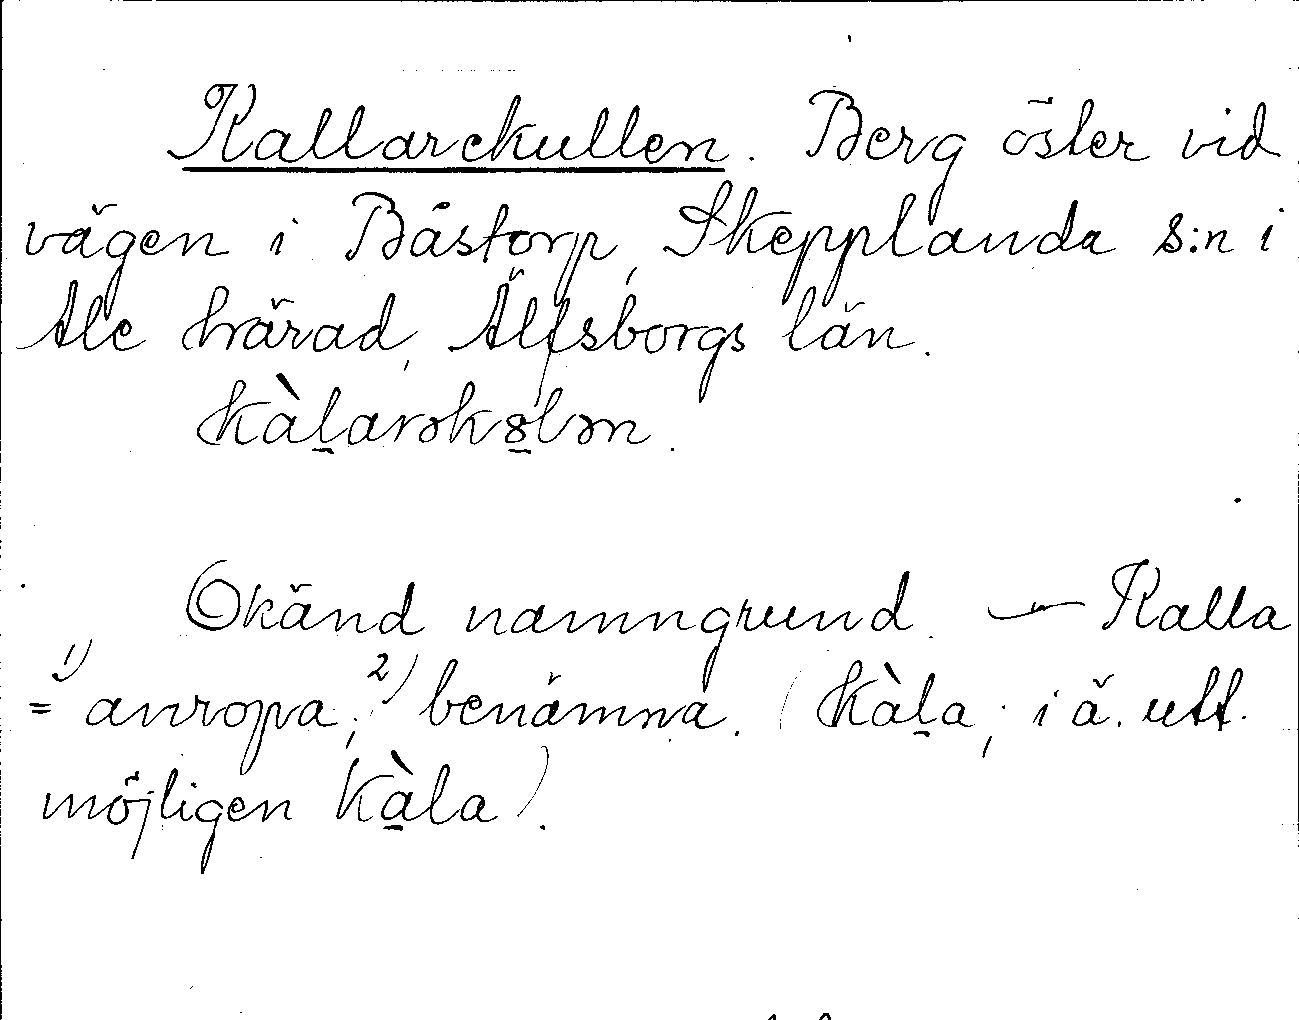 Kallarekullen. Berg öster vid
vägen i Båstorp, Skepplanda s:n i
Ale härad, Älfsborgs län.
Kàl̠arək8̠lən.
Okänd namngrund. — Kalla
= 1) anropa; 2) benämna. (Kàl̠a; i ä. utt.
möjligen Kà̠la).